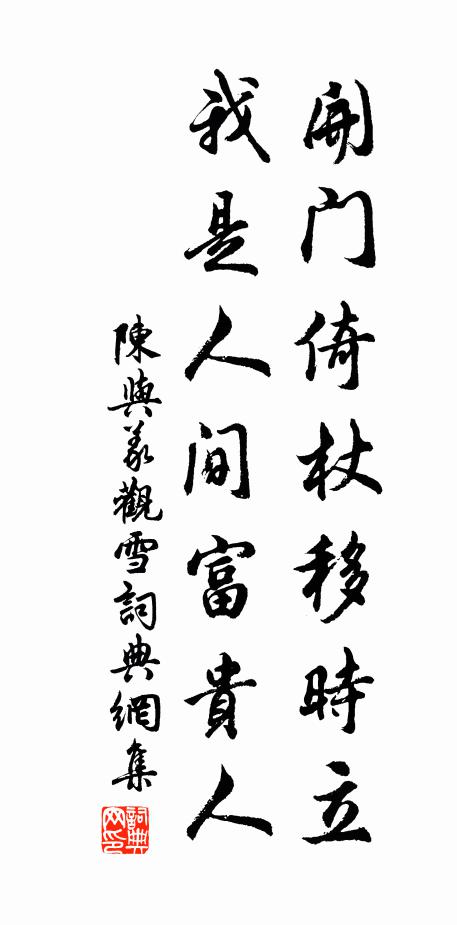 開門倚杖移時立
我是人間富貴人
陳與義觀雪詞典網集
詞典网印